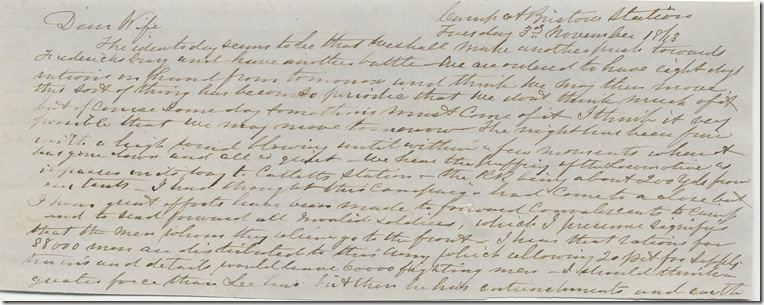 Camp at Bristow Station
Tuesday 3rd November 1863
Dear Wife
The idea today seems to be that we shall make another push towards
Fredericksburg and have another battle We are ordered to have eight days
rations on hand from tomorrow and think we may then move
this sort of thing has become so periodic that we don't think much of it
but of course some day something must come of it I think it very
possible that we may move tomorrow The night has been fine
with a high wind blowing until within a few moments when it
has gone down and all is quiet - We hear the puffing of the Locomotive as
it passes on its way to Catletts Station - the RR being about 200 yds from
our tents - I had thought this Campaign had come to a close but
I hear great efforts have been made to forward Convalescents to Camp
and to send forward all Invalid soldiers, which I presume signifies
that the men whom they allong to the front - I hear that rations for
88000 men are distributed to this army which allowing 20 pct for supply
trains and details would leave 60000 fighting men - I should think a
greater force than Lee has but then he has entrenchments and earth